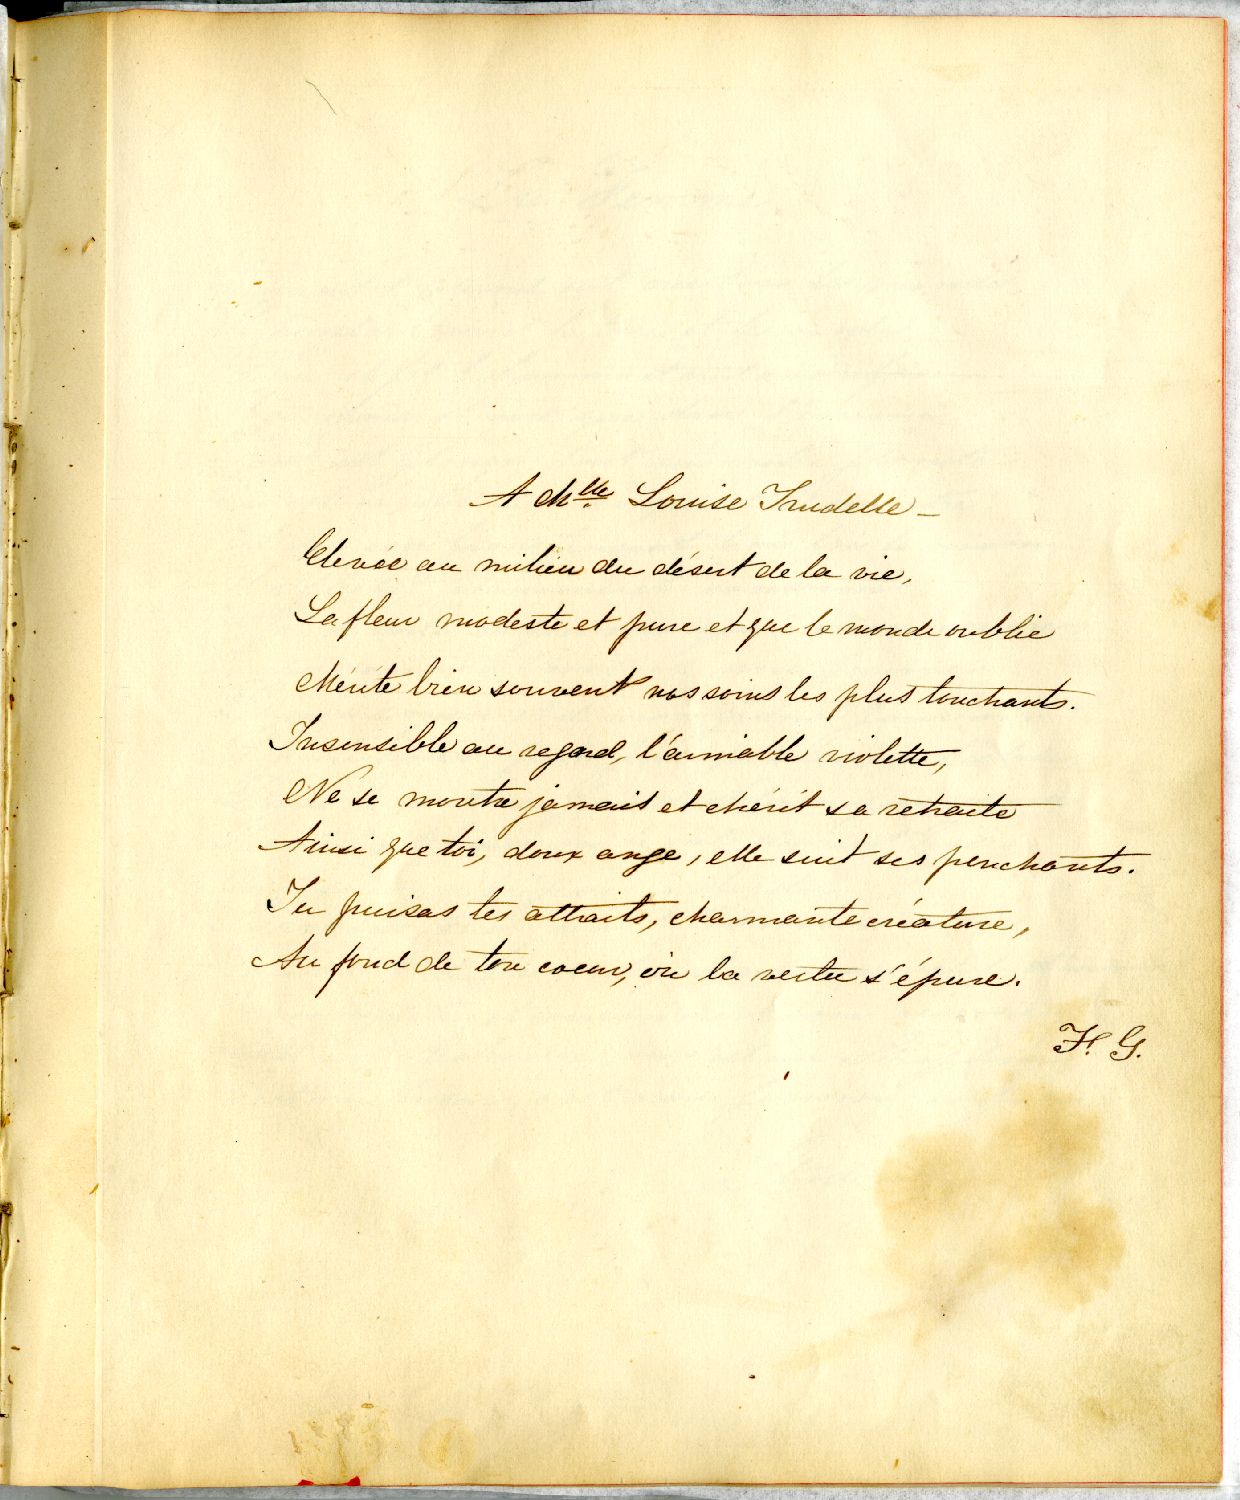 A Mlle. Louise Trudelle –
Elevée au milieu du désert de la vie,
La fleur modeste et pure et que le monde oublie
Mérite bien souvent nos soins les plus touchants.
Insensible au regard, l'aimable violette,
Ne se montre jamais et chérit sa retraite
Ainsi que toi, doux ange, elle suit ses penchants.
Tu puisas tes attraits, charmante créature,
Au fond de ton coeur, où la vertu s'épure.
H. G.